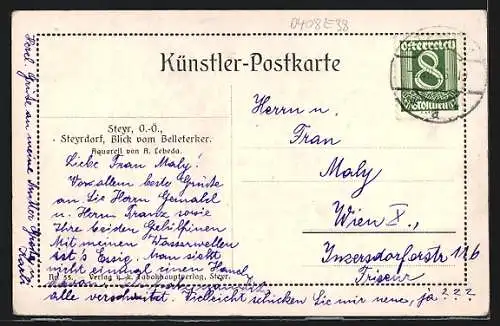 D408E38
Künstler-Postkarte
Österreich
8
Groschen
Steyr, O.-Ö.,
Steyrdorf, Blick vom Belleterker.
Aquarell von A. Lebeda.
Herrn u.
Frau
Maly
Wien X.,
Inzersdorferstr. 116
Friseur
Liebe Frau Maly!
Vor allem beste Grüße
an Sie Herrn Gemahl
u. Herrn Frantz sowie
Ihre beiden Gehilfinen
Mit meinen Wasserwellen
ist's Essig. Man sieht
Nr. 55. Verlag u. k. Fabekhauptverlag, Steyr.
nicht einmal einen Hauch
davon.
alle verschnitzt. Vielleicht schicken Sie mir neue, ja???
Herzl. Grüße an meine